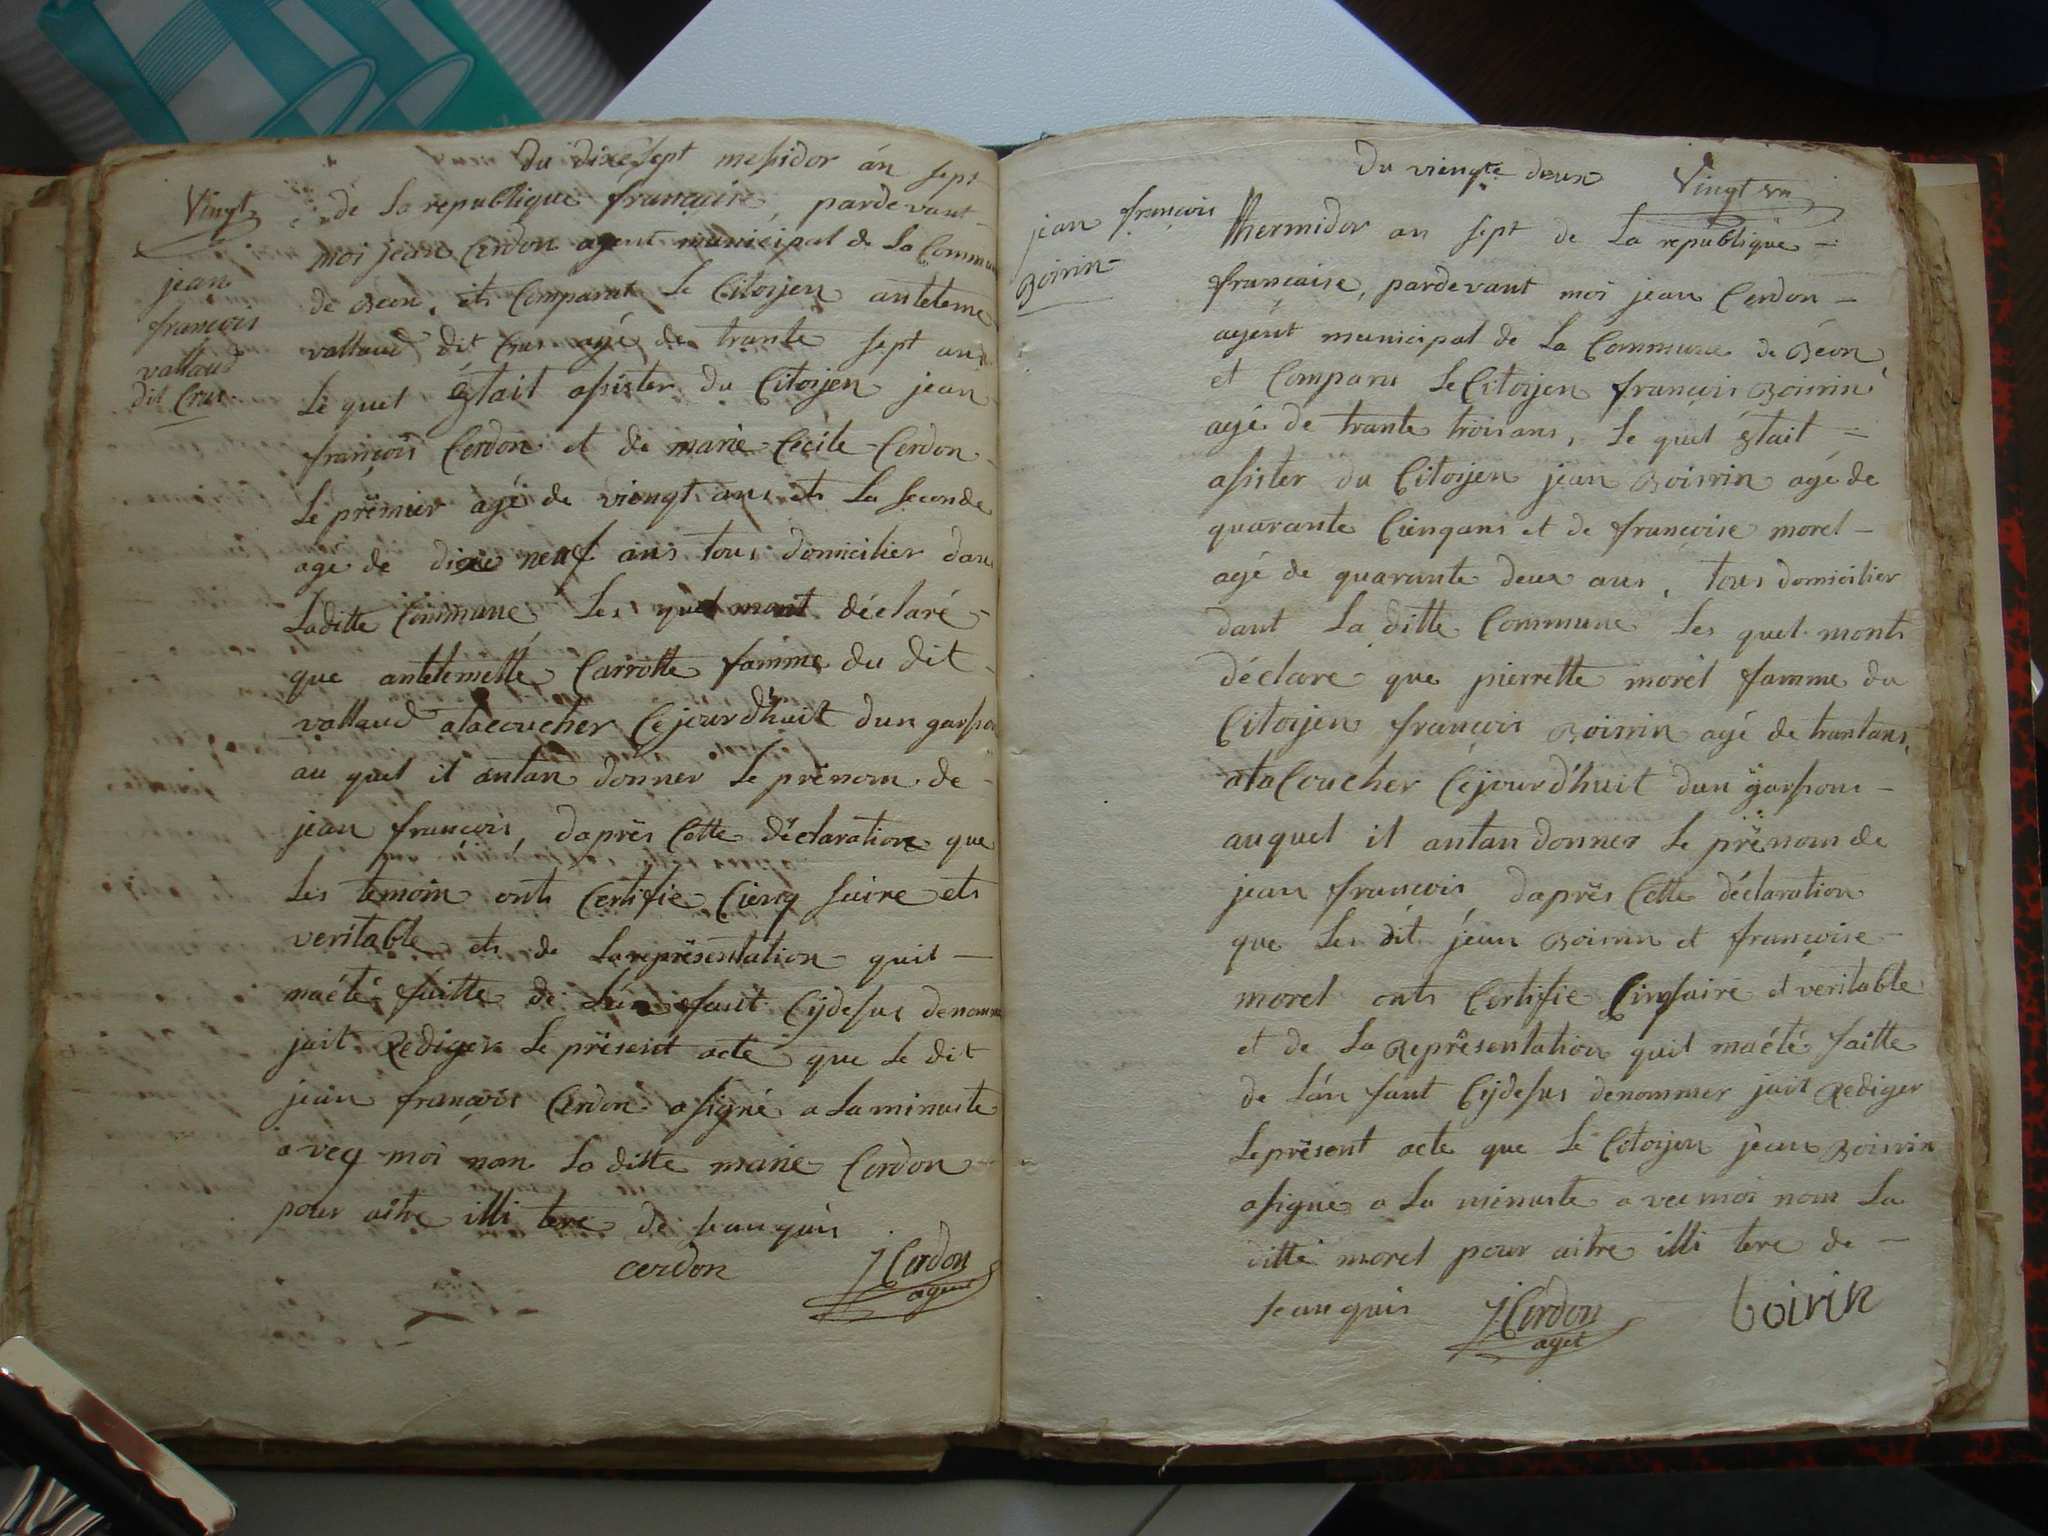 du dixe sept messidor án sept
Vingt
de La republique française, pardevant
moi jean Cerdon agent municipal de La Commune
de Beon, ets Comparut Le Citoijen anteleme
vallaud dit Crus agé de trante sept ans
Le quel êtait assister du Citoijen jean
françois Cerdon et de marie Cecile Cerdon
Le prëmier agé de viengt ans ets La seconde
agé de dixe neuf ans tous domicilier dans
Laditte Commune Les quel mont déclaré
que antelemette Carrotte famme du dit
vallaud alacoucher Cejourd'huit dun garson
au quel il antan donner Le prënom de
jean françois, daprës Cette dëclaration que
Les temoin onts Certifie Cienq saire ets
veritable ets de Larepësentation quil
maété faitte de Lán fant Cijdesus denommer
jait Rediger Le prësent acte que Le dit
jean françois Cerdon asigné a La minuste
aveq moi non La ditte marie Cerdon
pour aitre illi tere de seanquis
cerdon J Cerdon
agent
jean
françois
vallaud
dit Crus
du viengte deux
Vingt un
jean françois
Boirin
thermidor an sept de La republique
française, pardevant moi jean Cerdon
agent municipal de La Commune de Béon,
et Comparu Le Citoijen françois Boirrin
agé de trante trois ans, Le quel êtait
assister du Citoijen jean Boirrin agé de
quarante Cienqans et de françoise morel
agé de quarante deux ans, tous domicilier
dant La ditte Commune Les quel monts
déclare que pierrette morel famme du
Citoijen françois Boirrin agé de trantans,
ala Coucher Cejourd'huit dun garsons
auquel il antan donner Le prënom de
jean françois daprës Cette déclaration
que Les dit jean Boirrin et françoise
morel onts Certifie Cinsaire et veritable
et de La Reprësentation quil maété faitte
de Lán fant Cijdesus denommer jait Rediger
Le prësent acte que Le Citoijen jean Boirrin
asigné a La minuste avec moi nom La
ditte morel pour aitre illi tere de
seanquis J Cerdon boirin
aget